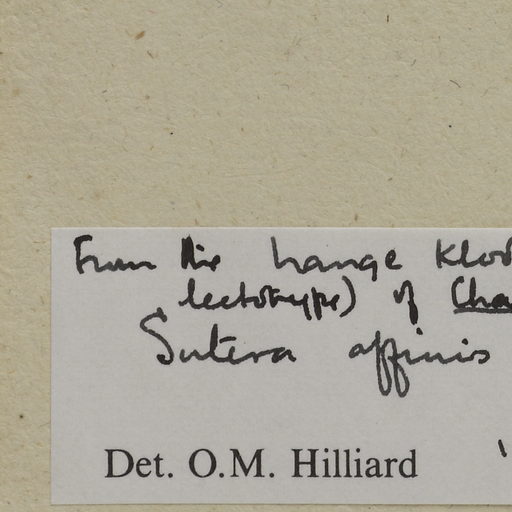 From the hange Klof
lectotype) of Cha
Sutera affinis
Det. O.M. Hilliard